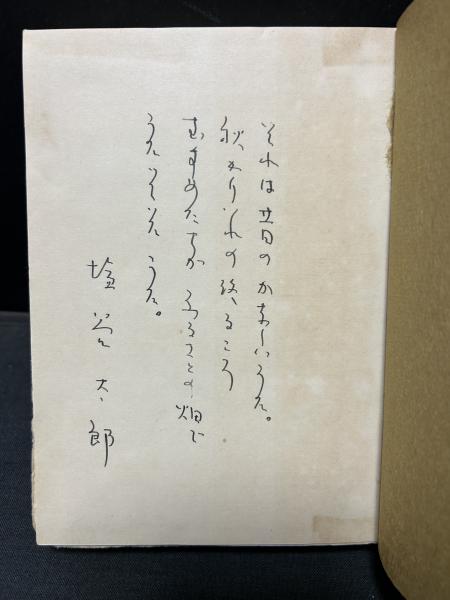 それは昔のかなしいうた。
秋、かりいれの終るころ
むすめたちが ふるさとの畑で
うた。
塩谷太郎